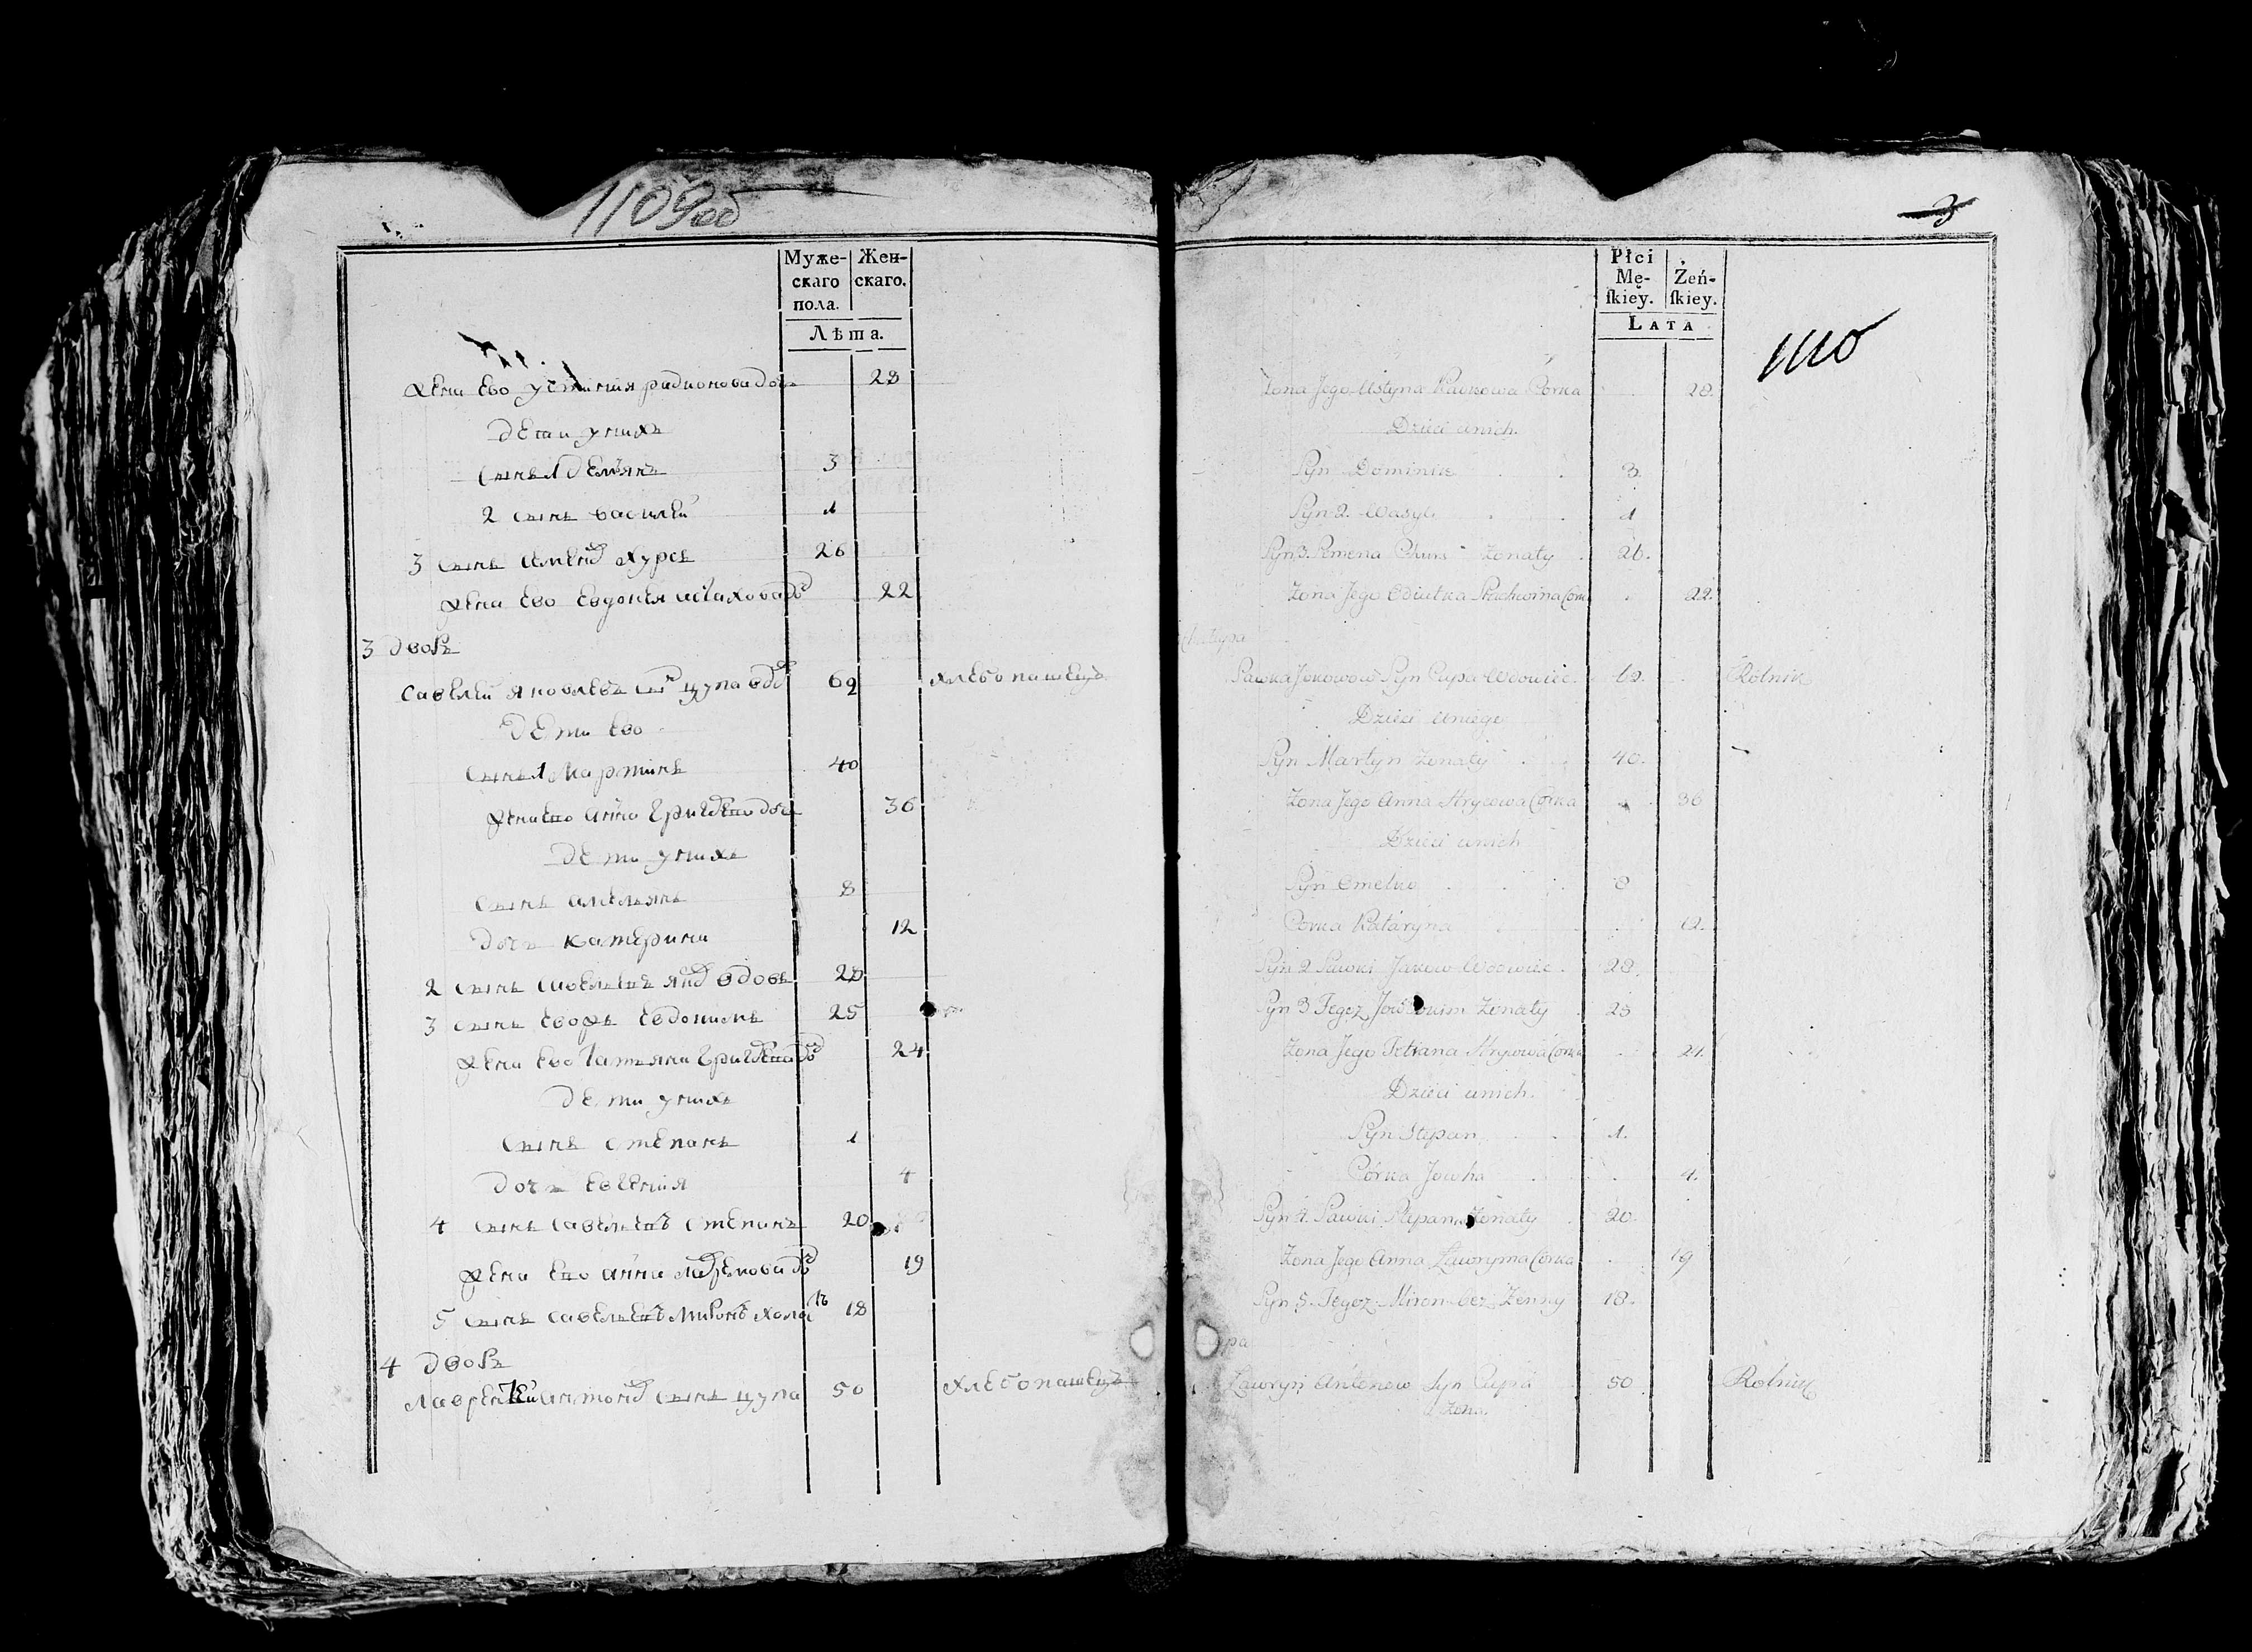 1109об
Муже-
скаго
пола.
Жен-
скаго.
Лѣта.
жена Ево устиния радионова доч 28
дети у них
сынъ 1 демянъ 3
2 сынъ василей 1
3 сынъ семенъ хурсъ 26
жена Ево Евдокия астахова до 22
3 дворъ
савелий яковлевъ сын цупа вдо 62 хлебопашецъ
дети Ево
сынъ 1 мартинъ 40
жена Ево анна григ доч 36
дети у нихъ
сынъ амельянъ 8
дочъ катерина 12
2 сынъ савельевъ вдовъ 28
3 сынъ Евдокимъ 25
жена Ево татьяна григ до 24
дети у нихъ
сынъ степанъ 1
дочъ Евгения 4
4 сынъ савельевъ степанъ 20
жена Ево анна до 19
5 сынъ савельевъ миронъ холо 18
4 дворъ
Лаврентей антонов сынъ цупа 50 хлебопашецъ
3
1110
Płci
Mę-
ſkiey.
Żeń-
ſkiey.
LATA
Żona Jego Ustyna Córka 28.
Dzieci unich.
Syn Dominik 3.
Syn 2. Wasyl. 1
Syn 3. Żonaty 26.
Żona Jego Córk 22.
Chałupa
Sawka Jakowow Syn Cupa Wdowiec. 62. Rolnik
Dzieci uniego
Syn Martyn Żonaty 40.
Żona Jego Anna Hrycowa Córka 36
Dzieci unich
Syn Omelko 8
Córka Kataryna 12.
Syn 2 Sawki Jakow Wdowiec. 28.
Syn 3 Tegoż Żonaty 25
Żona Jego Tetiana Hrycowa Córka 24.
Dzieci unich.
Syn Stepan 1.
Córka Jowha 4.
Syn 4. Sawki Stepan Żonaty 20.
Żona Jego Anna Ławryna Córka 19
Syn 5. Tegoż Miron bez Żenny 18.
Ławryn Antonow Syn Cupa 50 Rolnik
i Żona.